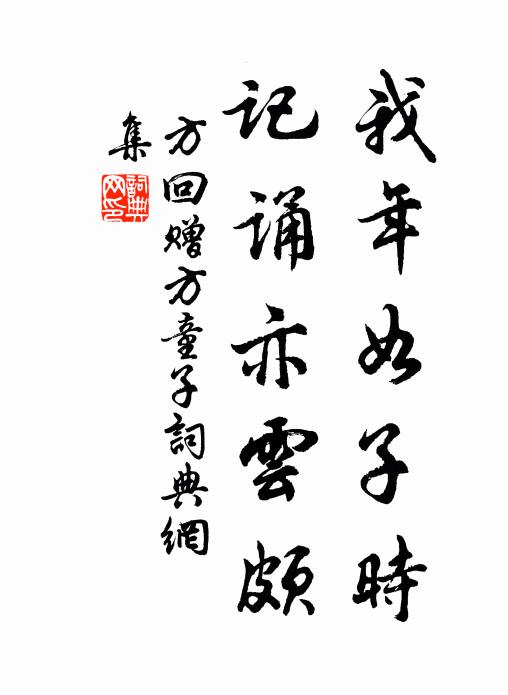 我年如子時
記誦亦雲頗
方回贈方童子詞典網
集
詞典
网印